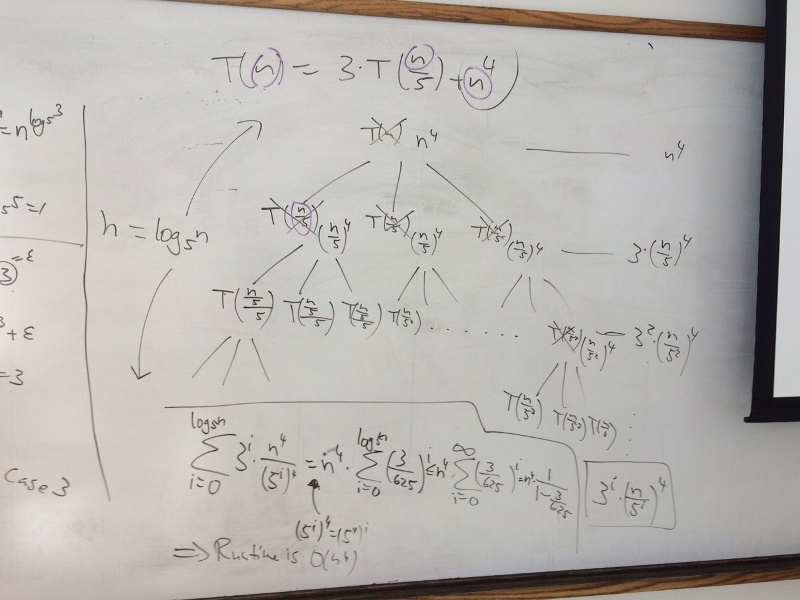 T(n) = 3·T(n/5) + n^4
T(n) n^4 n^4
= n^log5 3
5^5 = 1
h = log5 n
T(n/5) (n/5)^4 T(n/5) (n/5)^4 T(n/5) (n/5)^4 3·(n/5)^4
= ε
3
T(n/5/5) T(n/5/5) T(n/5/5) T(n/5^2) . . . . . . T(n/5^2) (n/5^2)^4 3^2·(n/5^2)^4
+ ε
= 3
T(n/5^3) T(n/5^3) T(n/5^3)
Case 3
∑_{i=0}^{log5 n} 3^i · n^4/(5^i)^4 = n^4 · ∑_{i=0}^{log5 n} (3/625)^i ≤ n^4 ∑_{i=0}^{∞} (3/625)^i = n^4 · 1/(1 - 3/625)
3^i · (n/5^i)^4
(5^i)^4 = (5^4)^i
⇒ Runtime is O(n^4)